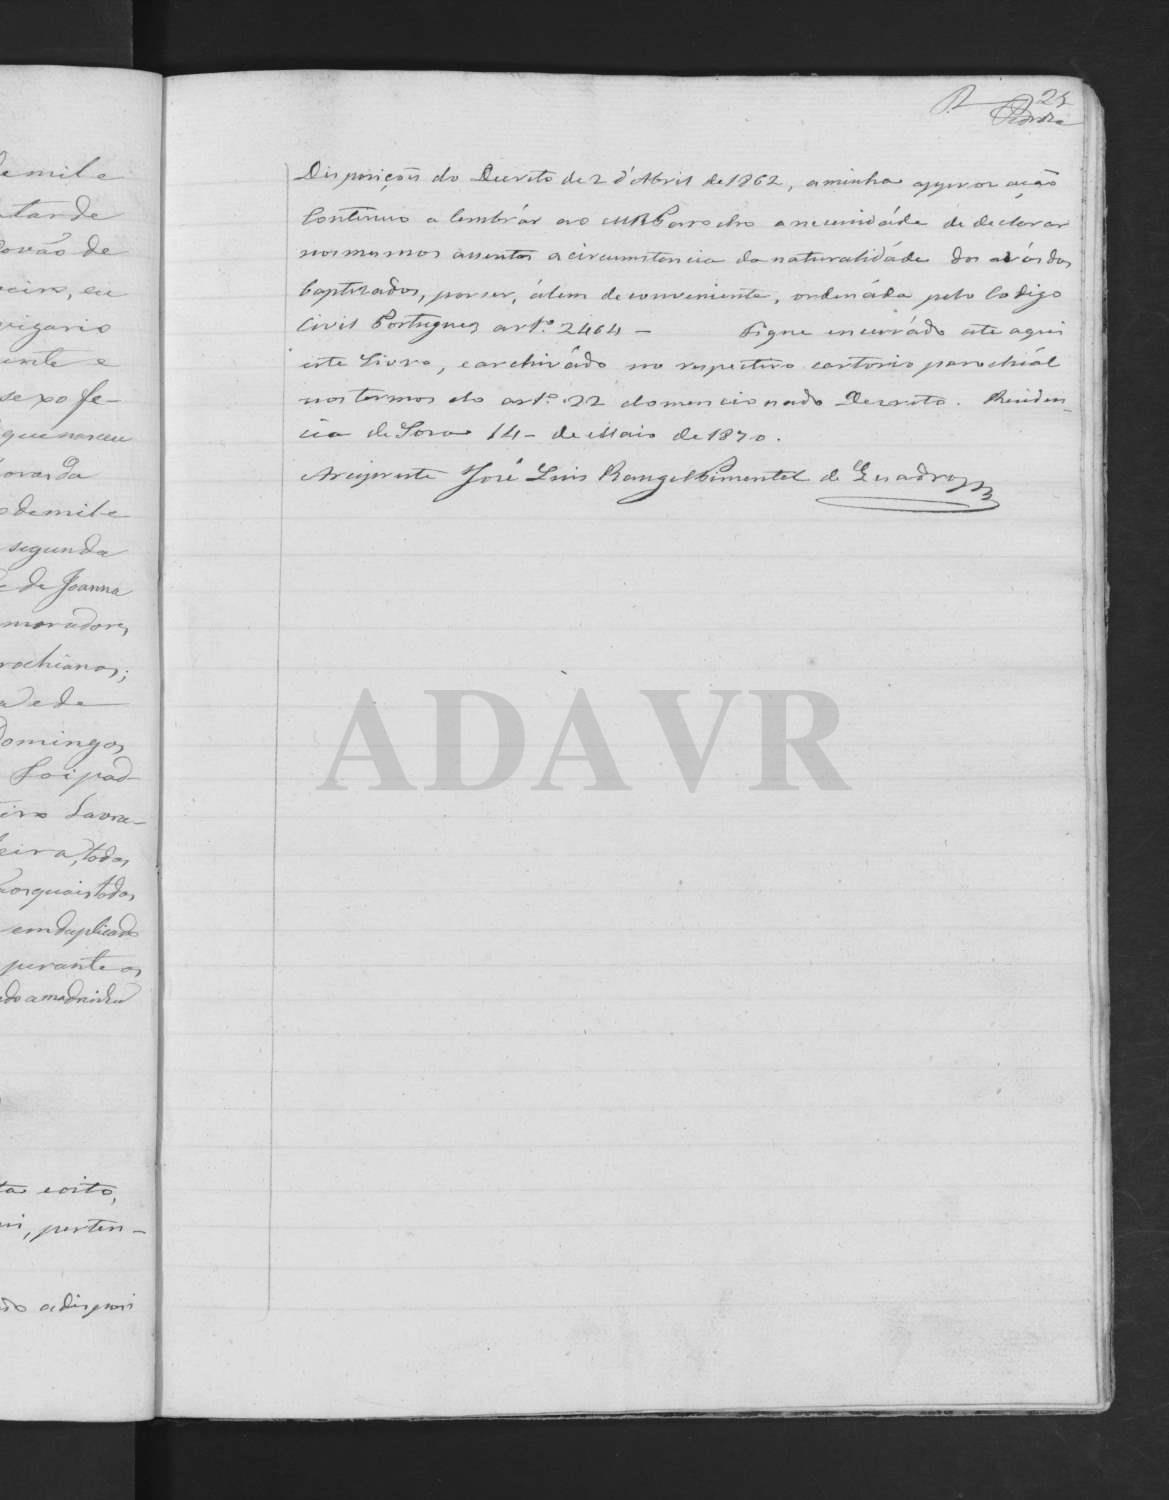 demil e
a tarde
ovão de
eiro, eu
vigario
ente e
sexo fe-
que nasceu
ovar da
o de mil e
segunda
e de Joanna
moradores,
rochianos;
a e de
Domingos,
Foi pad-
eiro Lavra-
eira, todos
os quais todos
em duplicado
perante os
do a madrinha
ta e oito,
ui, perten-
do a disposi
25
Disposições do Decreto de 2 d'Abril de 1862, a minha approvação
Continuo a lembrár ao M R Parrocho a necessidáde de declarar
nos mesmos assentos a circumstancia da naturalidáde dos avós dos
baptizados, por ser, álem de conveniente, ordenáda pelo Codigo
Civil Portuguez art.º 2464 - Fique encerrádo até aqui
este Livro, e archivádo no respectivo cartorio parochiál
nos termos do art.º 22 do mencionado Decreto. Residen-
cia de Soza 14 - de Maio de 1870.
Arcipreste José Luis Rangel Pimentel de Quadros
ADAVR